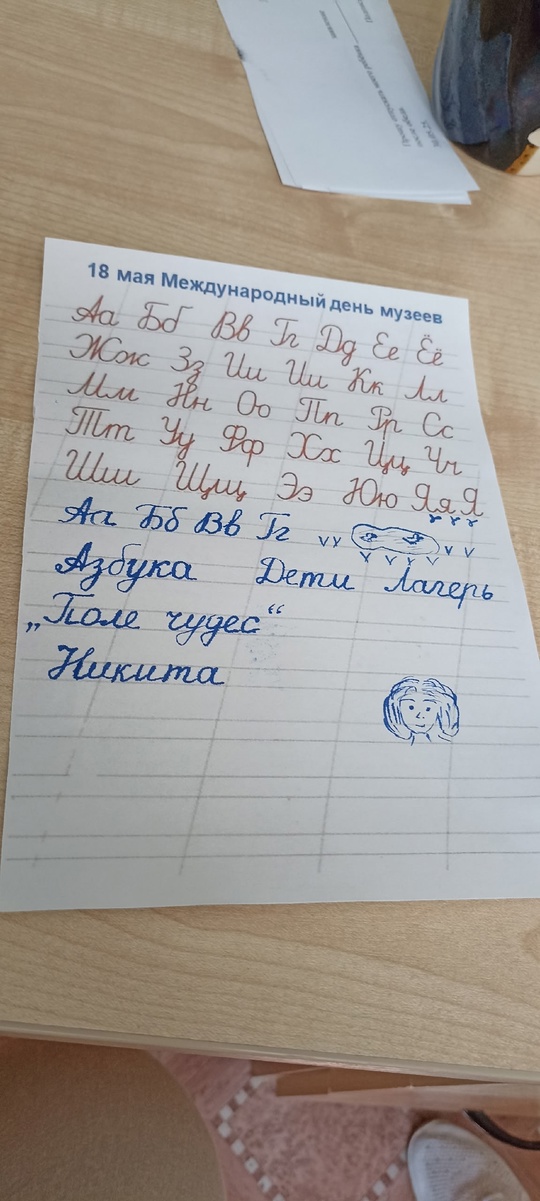 18 мая Международный день музеев
Аа Бб Вв Гг Дд Ее Ёё
Жж Зз Ии Ии Кк Лл
Мм Нн Оо Пп Рр Сс
Тт Уу Фф Хх Цц Чч
Шш Щщ Ээ Юю Яя Я
Аа Бб Вв Гг
Азбука Дети Лагерь
„Поле чудес“
Никита